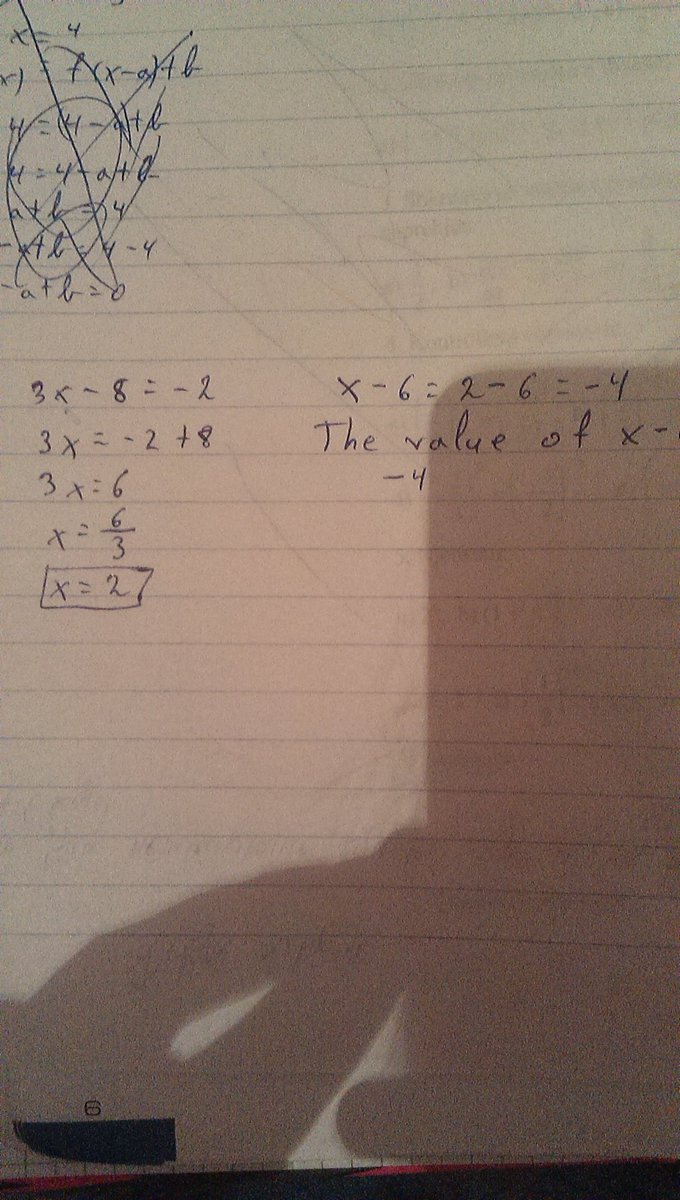 x = 4
x) = f(x-a)+b
4 = (4-a)+b
4 = 4-a+b
a+b = 4
-a+b = 4-4
-a+b = 0
3x - 8 = -2
3x = -2 + 8
3x = 6
x = 6/3
x = 2
x - 6 = 2 - 6 = -4
The value of x -
-4
6